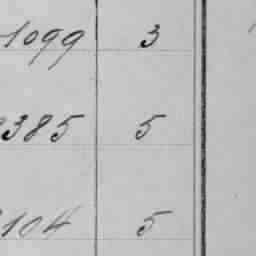 1099 3
385 5
104 5